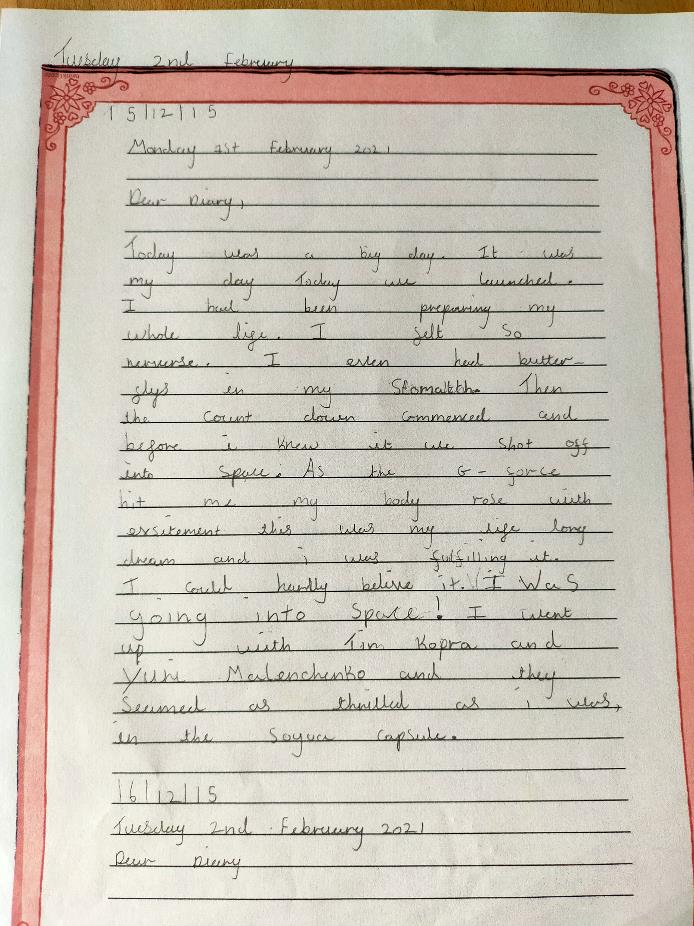 Tuesday 2nd February
15/12/15
Monday 1st February 2021
Dear Diary,
Today was a big day. It was
my day Today we launched.
I had been preparing my
whole life. I felt so
nerverse. I even had butter-
flys in my Stomatch. Then
the count down commenced and
before i knew it we shot off
into space. As the G-force
hit me my body rose with
exsitement this was my life long
dream and i was fulfilling it.
I could hardly belive it. I Was
going into Space! I went
up with Tim Kopra and
Yuri Malenchenko and they
Seemed as thrilled as i was,
in the Soyuz capsule.
16/12/15
Tuesday 2nd February 2021
Dear Diary